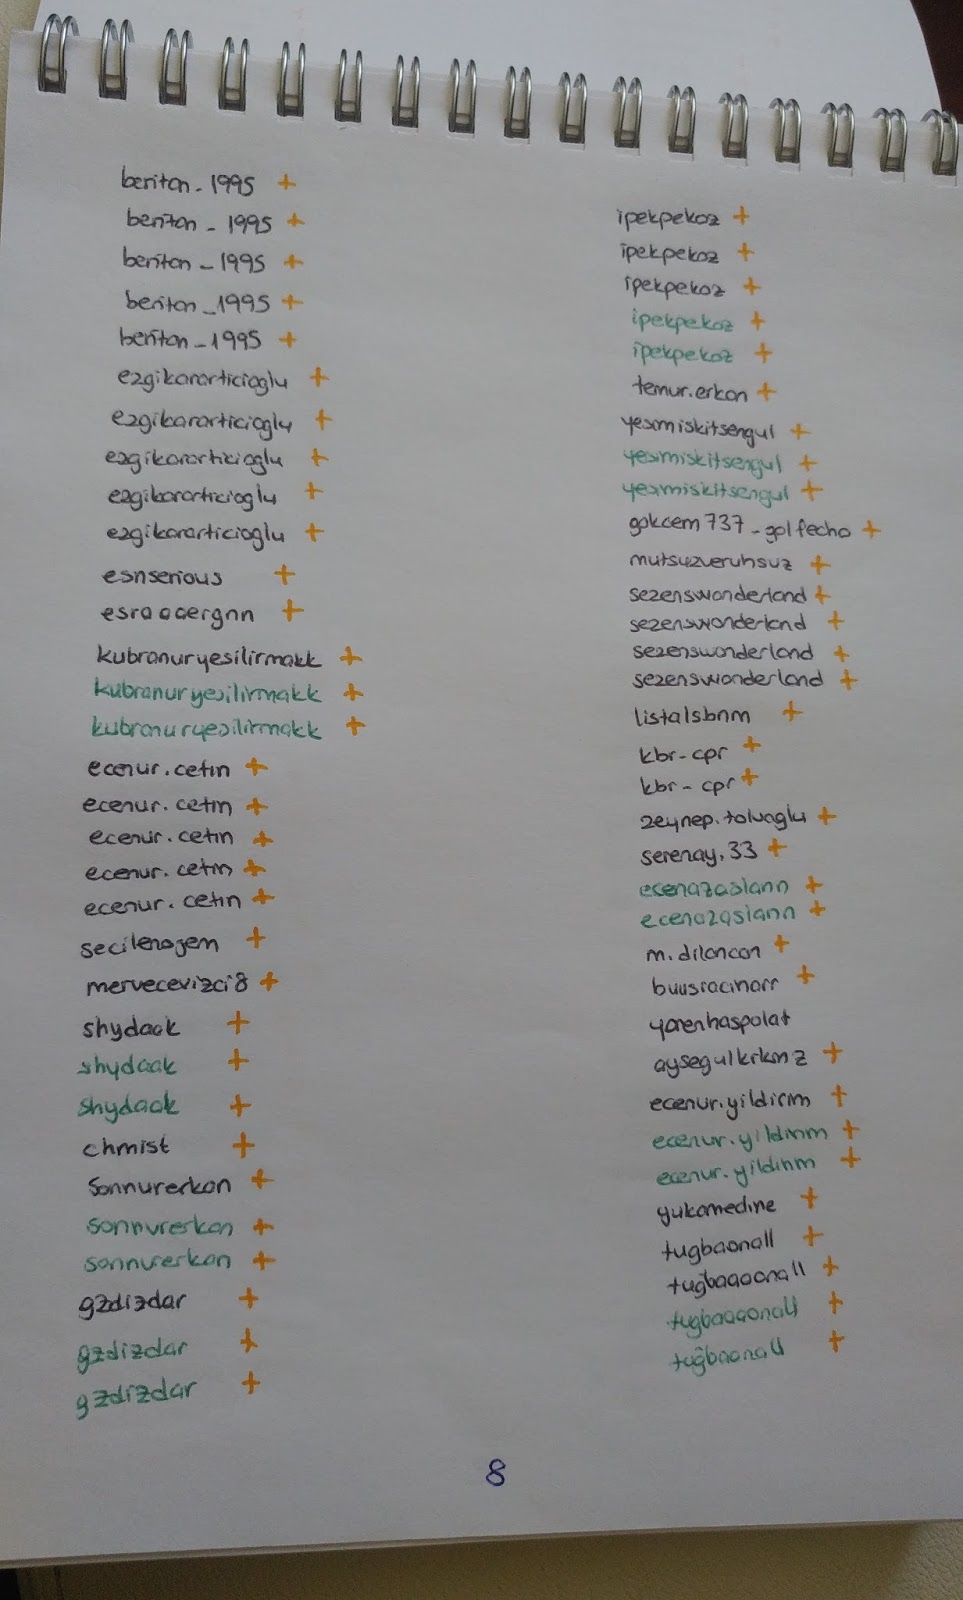 beritan_1995 +
beritan_1995 +
beritan_1995 +
beritan_1995 +
beritan_1995 +
ezgikararticioglu +
ezgikararticioglu +
ezgikararticioglu +
ezgikararticioglu +
ezgikararticioglu +
esnserious +
esraaaergnn +
kubranuryesilirmakk +
kubranuryesilirmakk +
kubranuryesilirmakk +
ecenur.cetin +
ecenur.cetin +
ecenur.cetin +
ecenur.cetin +
ecenur.cetin +
secilenajem +
mervecevizci8 +
shydaak +
shydaak +
shydaak +
chmist +
sannurerkan +
sannurerkan +
sannurerkan +
gzdizdar +
gzdizdar +
gzdizdar +
ipekpekoz +
ipekpekoz +
ipekpekoz +
ipekpekoz +
ipekpekoz +
temur.erkan +
yesmiskitsengul +
yesmiskitsengul +
yesmiskitsengul +
gokcem737_golfecha +
mutsuzveruhsuz +
sezenswonderland +
sezenswonderland +
sezenswonderland +
sezenswonderland +
listalsbnm +
kbr-cpr +
kbr-cpr +
zeynep.toluoglu +
serenay.33 +
ecenazaslann +
ecenazaslann +
m.dilancan +
buusracinarr +
yarenhaspolat
aysegulkrkmz +
ecenur.yildirim +
ecenur.yildirim +
ecenur.yildirim +
yukamedine +
tugbaonall +
tugbaaaonall +
tugbaaaonall +
tugbaonall +
8